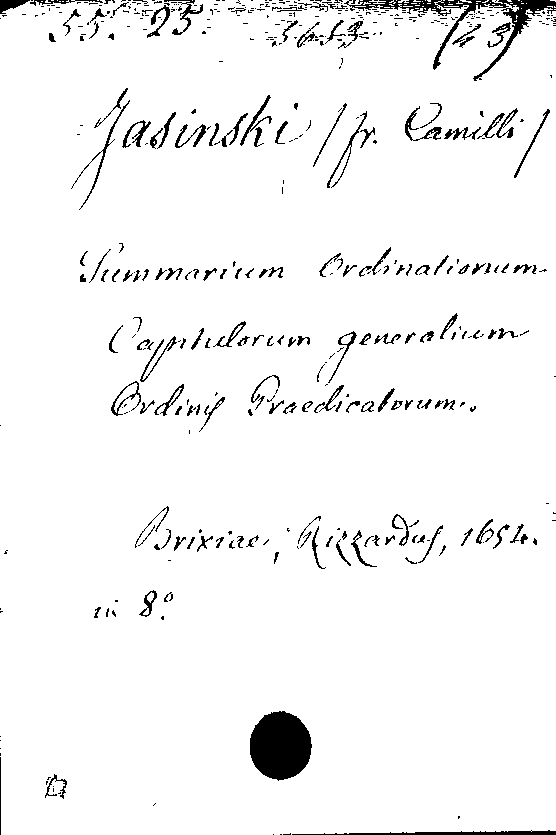 55. 25. 3653 (43)
Jasinski /fr. Camilli/
Summarium Ordinationum
Capitulorum generalium
Ordinis Praedicatorum.
Brixiae, Rizzardus, 1654.
in 8.°